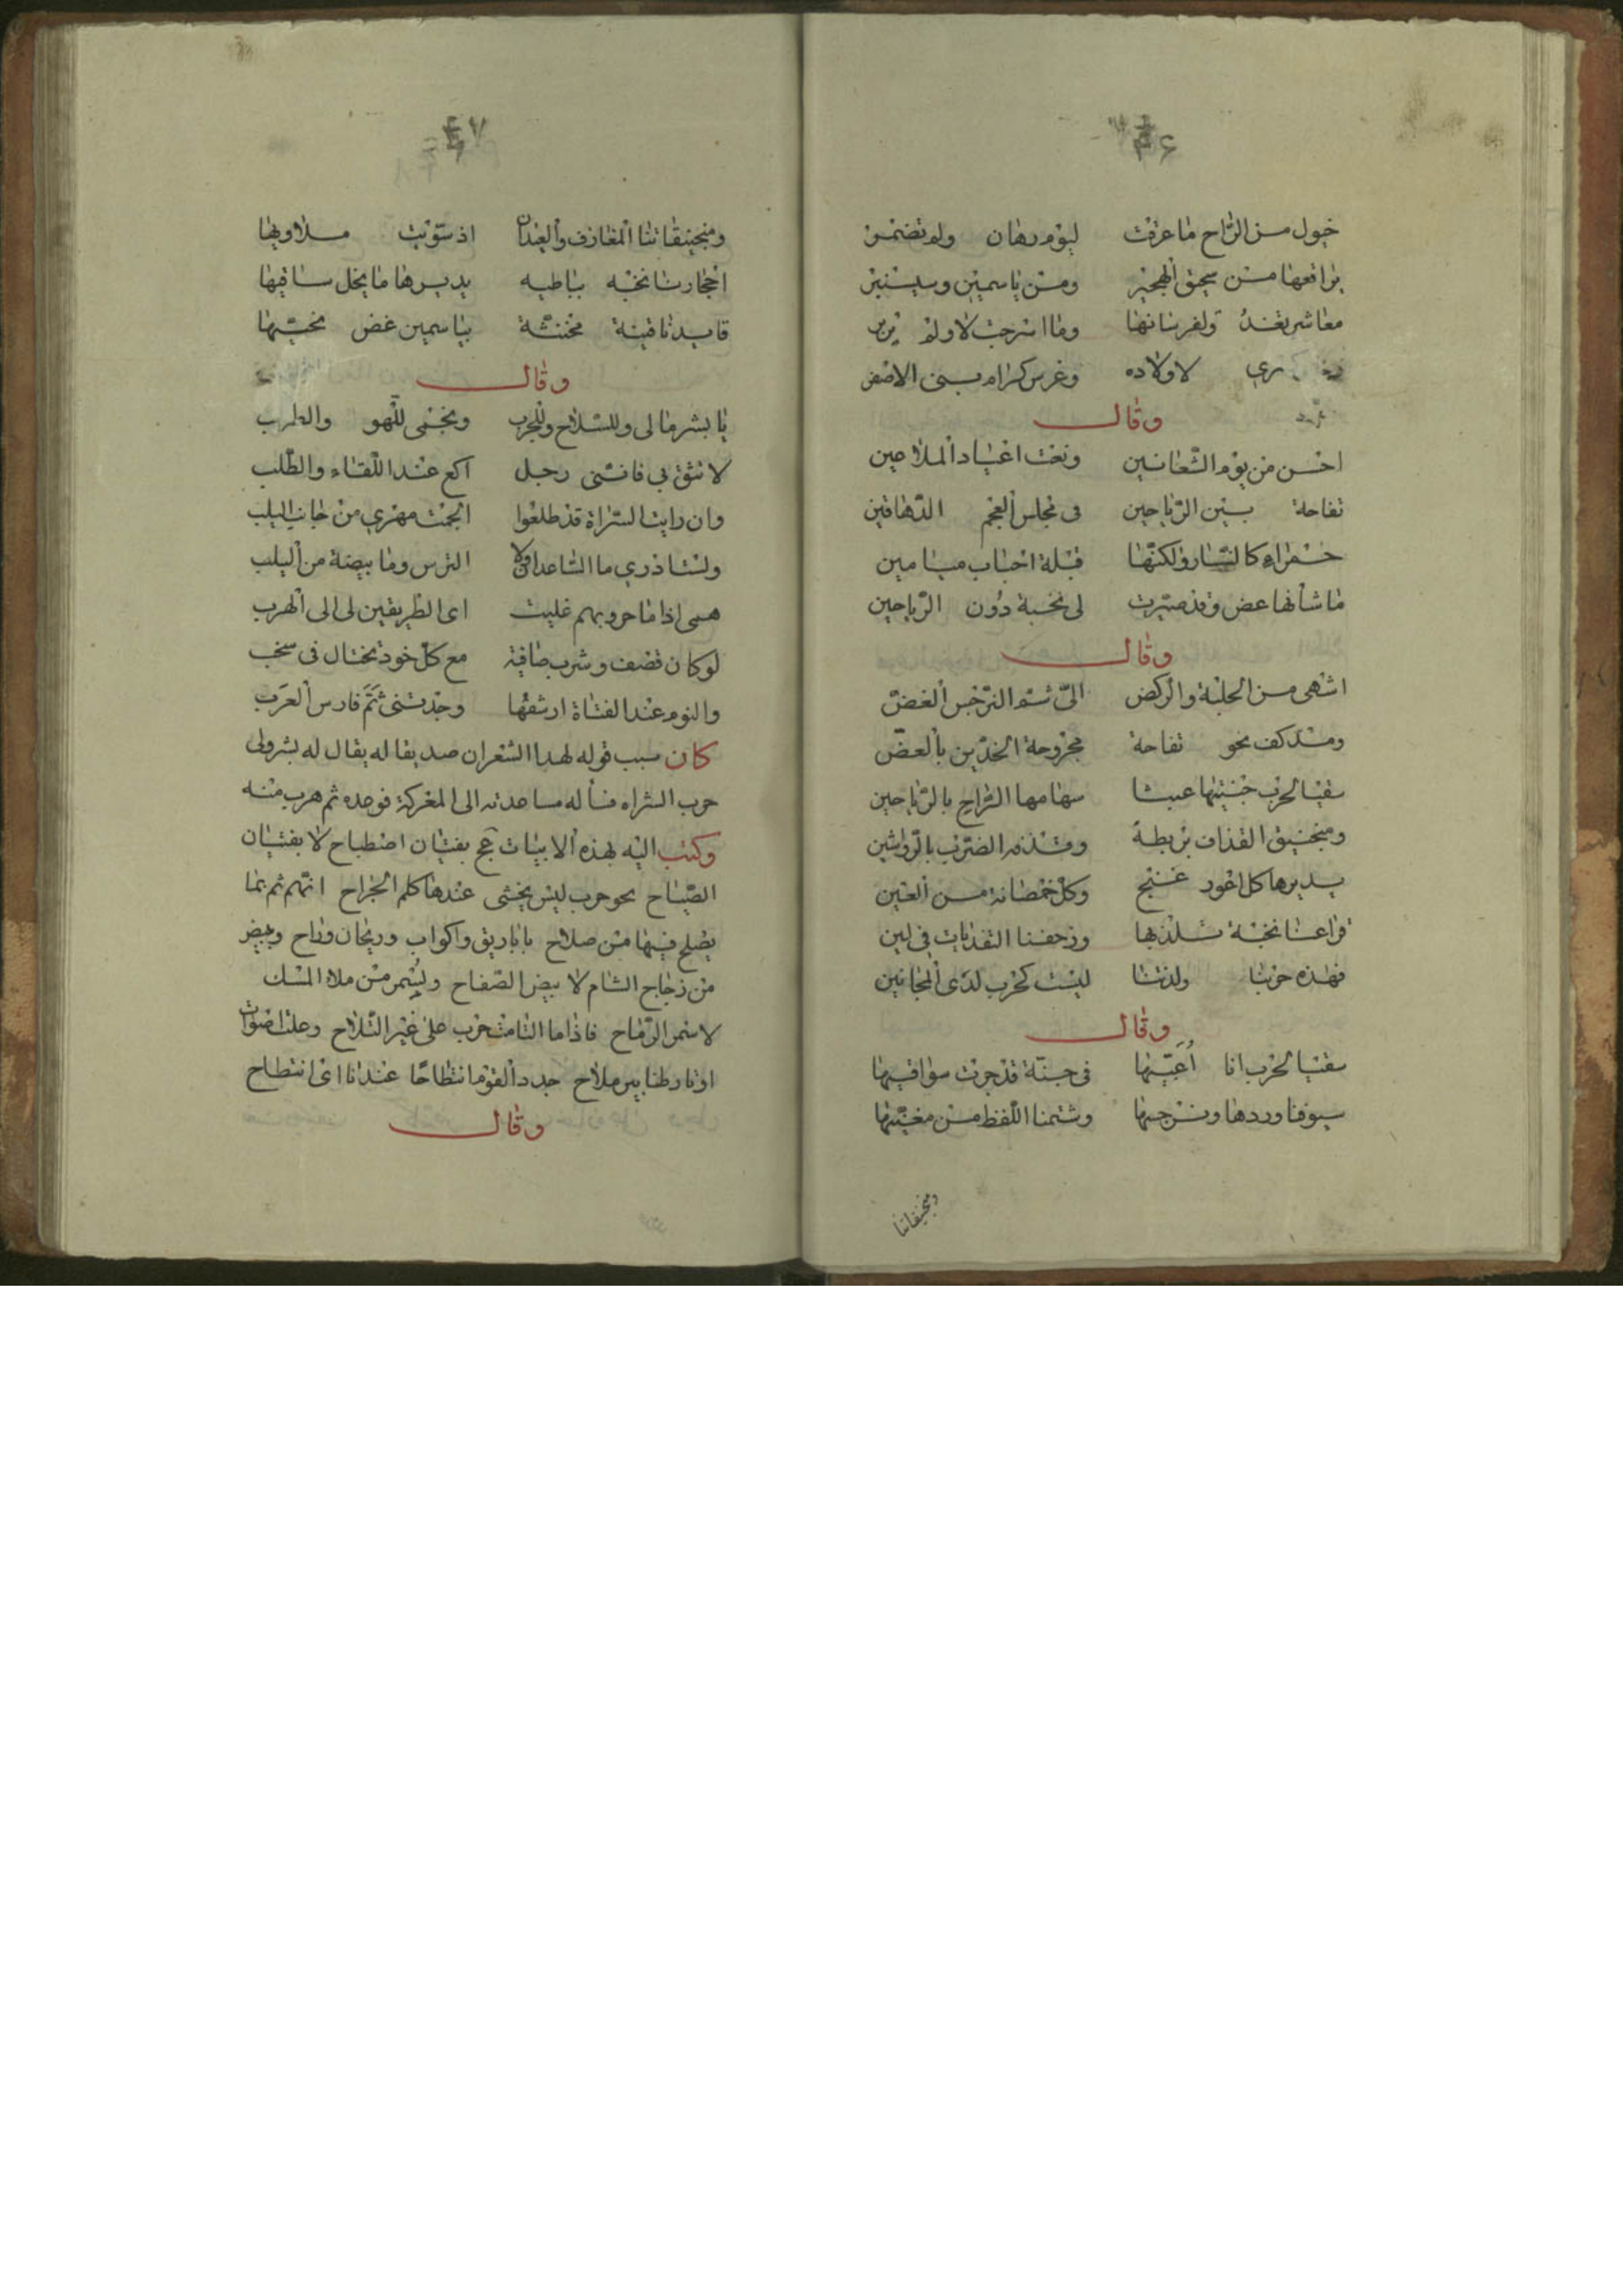 خيول من الراح ما عرقت ليوم رهان ولم تضمر
براقعها من سحيق الهجير ومن ياسمين وسيسنبر
ري لاولاده وغرس كرام بنى الاصفر
وقال
احسن من يوم الشعانين ونعت اعياد الملاعين
تفاحة بين الرياحين فى مجلس العجم الدهاقين
حمراء كالنار ولكنها قبلة احباب ميامين
ما شأنها عض وقد صيرت لى نخبة دون الرياحين
وقال
اشهى من الحلبة والركض الىّ شم النرجس الغضّ
ومد كف نحو تفاحة مجروحة الخدّين بالعضّ
سقيا لحرب جنيتها عبثا سهامها الراح بالرياحين
ومنجنيق القذاف بربطة
يديرها كل اغور غنج وكل خمصانة من العين
فهذه حربنا ولذتنا ليست كحرب لدى المجانين
وقال
سقيا لحرب انا اُعَبّيها فى جنة قد جرت سواقيها
سيوفنا وردها ونرجسها وشتمنا اللفظ من مغنيها
ومنجنيقاتنا
ومنجنيقاتنا المعازف والعيدان اذ سوّيت ملاويها
احجارنا نخبه بباطيه يديرها ما يخل ساقيها
قايدنا قينة مخنثة بياسمين غض نحييها
وقال
يا بشر مالى وللسلاح وللحرب ونجمى للّهو والطرب
لا تثق بى فانّنى رجل اكع عند اللقاء والطلب
وان رايت الشراة قد طلعوا الجمت مهري من جانب اللبب
ولست ادري ما الساعدان ولا الترس وما بيضة من اليلب
همى اذا ما حروبهم غلبت اى الطريقين لى الى الهرب
لو كان قصف وشرب صافية مع كل خود تختال فى سخب
والنوم عند الفتاة ارشفها وجدتنى ثَمّ فارس العَرَب
كان سبب قوله لهذا الشعر ان صديقا له يقال له بشر ولى
حرب الشراه فسأله مساعدته الى المعركة فوعده ثم هرب منه
وكتب اليه بهذه الابيات عج بفتيان اصطباح لا بفتيان
الصّياح نحو حرب ليس يخشى عندها كلم الجراح انهم ثم بما
يصلح فيها من صلاح باباريق واكواب وريحان وراح وببيض
من زجاج الشام لا بيض الصفاح وبسمر من ملاء المسك
لا سمر الرماح فاذا ما التامت حرب على غير التلاح وعلت اصوات
اوتار طنابير ملاح جدد القوم انتطاحا عندنا اى انتطاح
وقال